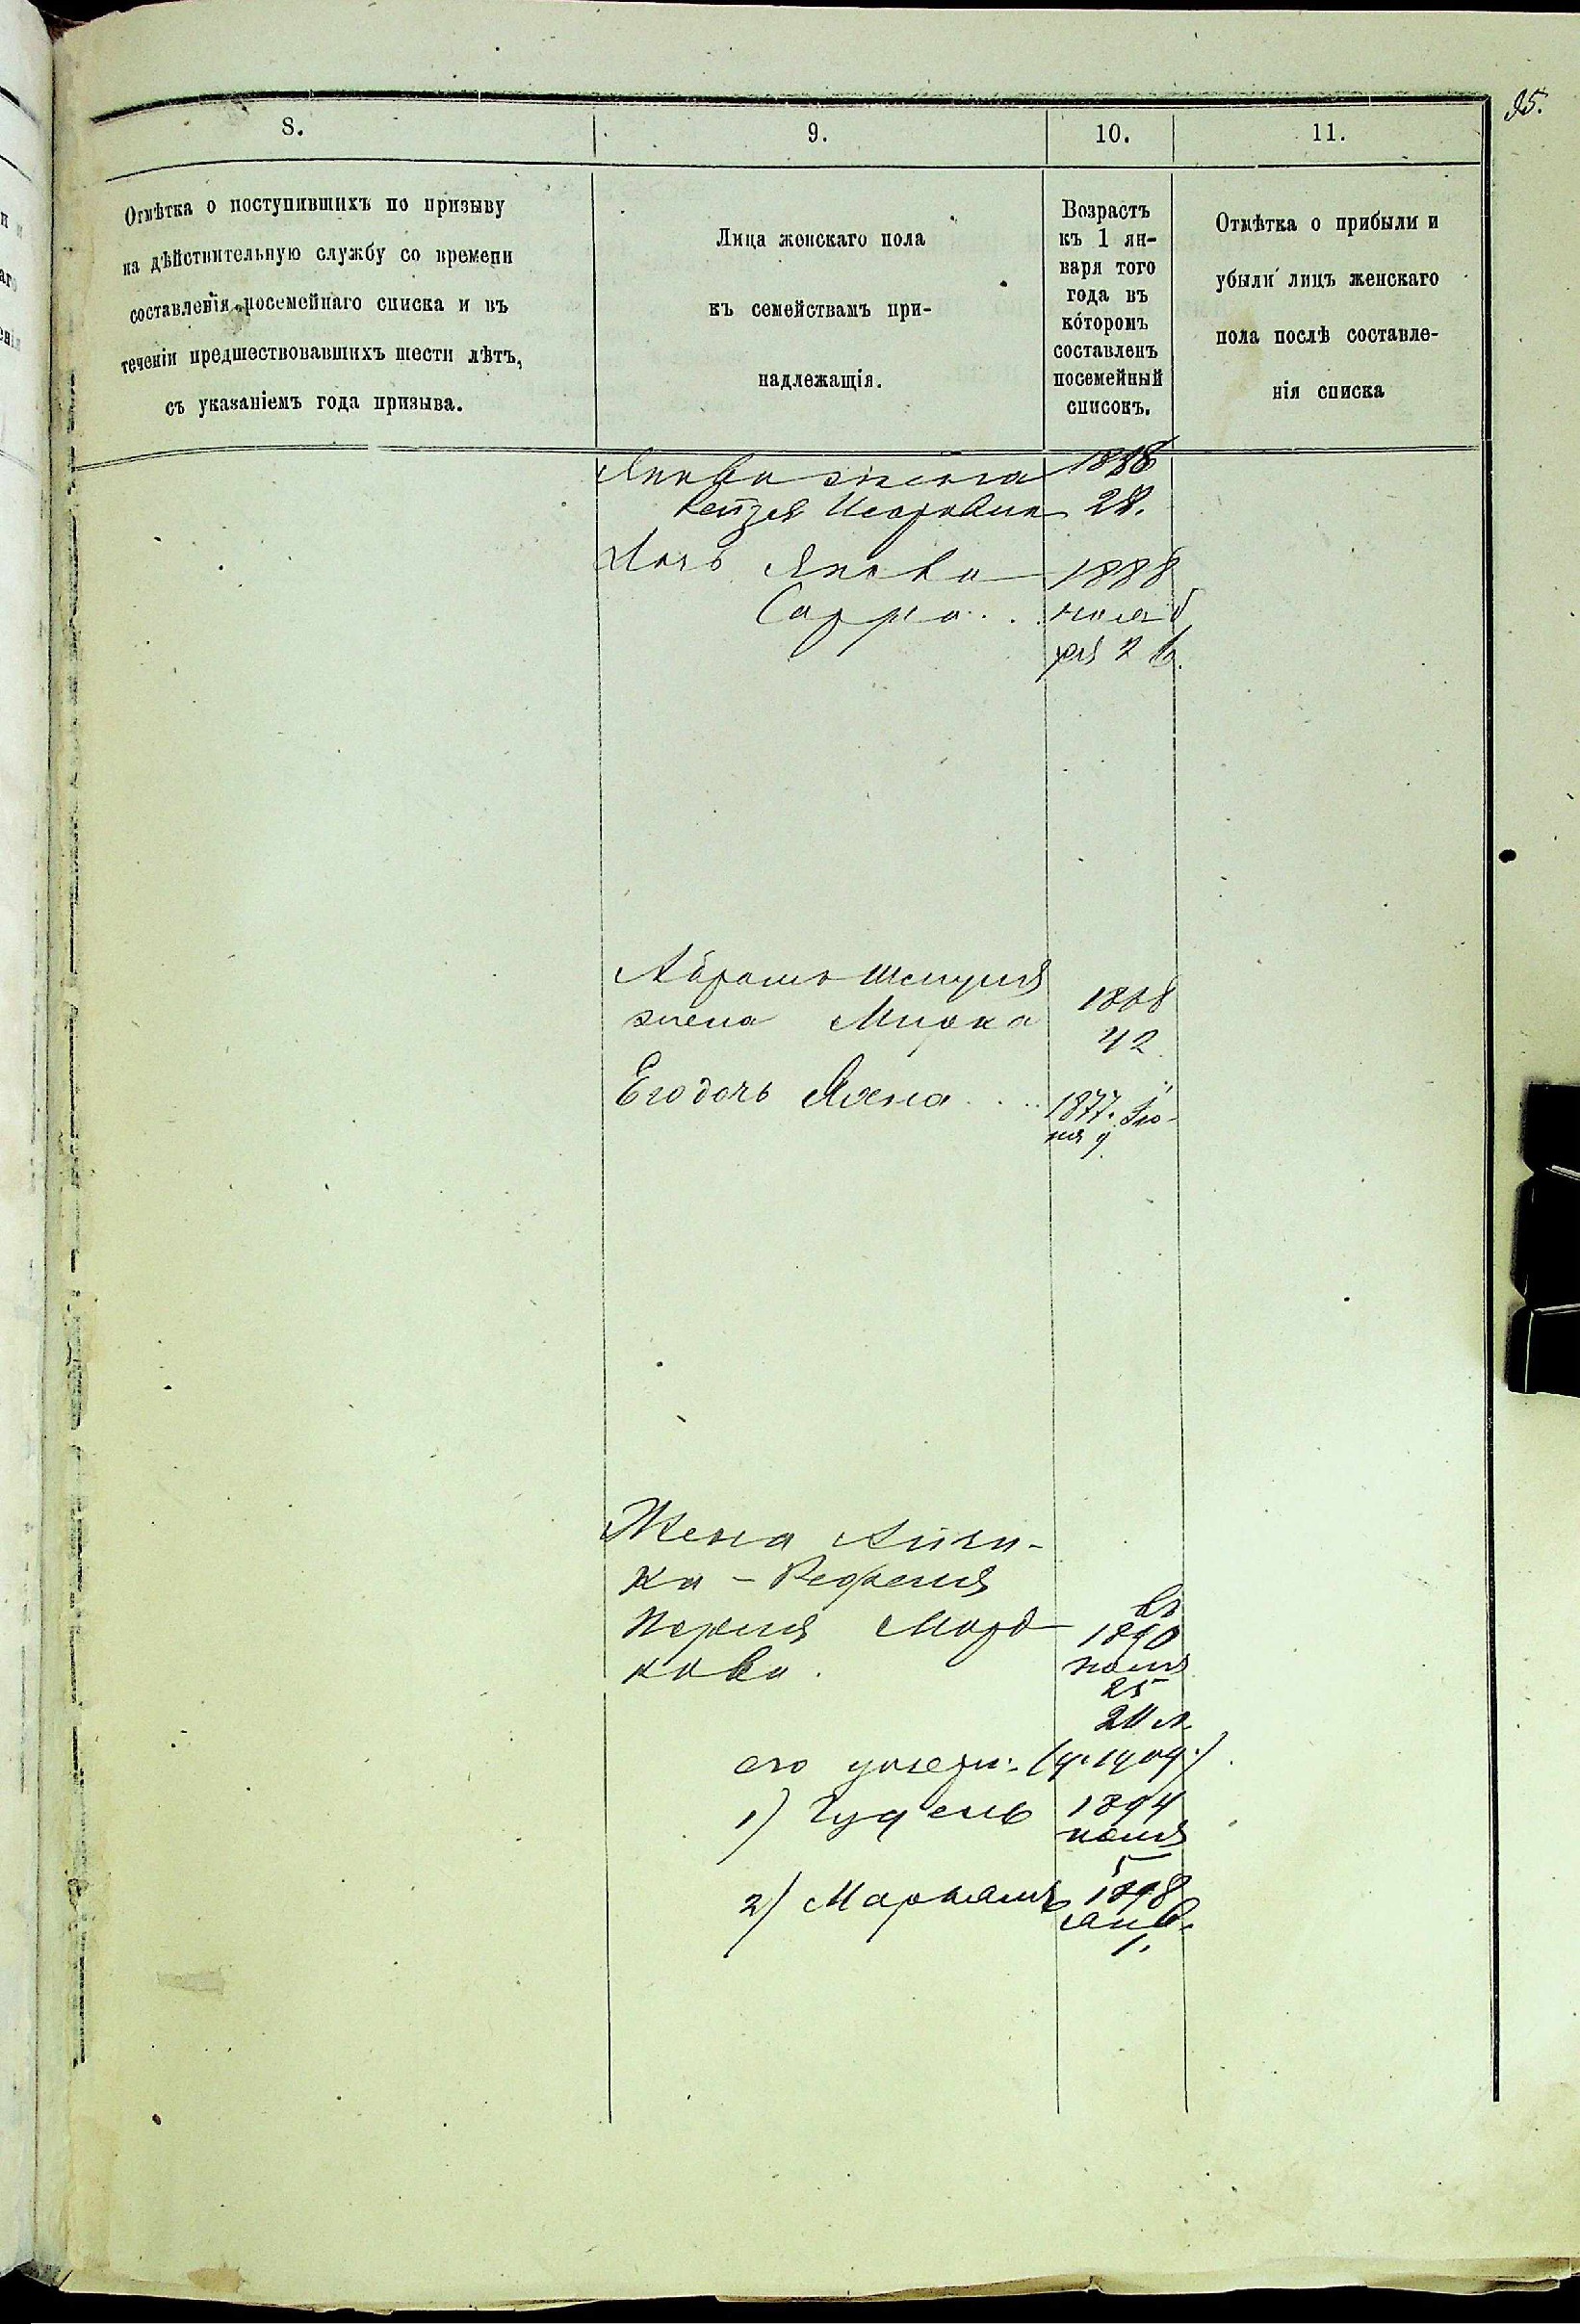 95.
8.
9.
10.
11.
Отмѣтка о поступившихъ по призыву
на дѣйствительную службу со времени
составленія посемейнаго списка и въ
теченіи предшествовавшихъ шести лѣтъ,
съ указаніемъ года призыва.
Лица женскаго пола
къ семействамъ при-
надлежащія.
Возрастъ
къ 1 ян-
варя того
года въ
которомъ
составленъ
посемейный
списокъ.
Отмѣтка о прибыли и
убыли лицъ женскаго
пола послѣ составле-
нія списка
Янкеля жена 1888
Рейзя 28.
Дочь Янкеля 1888
Сарра . . нояб
ря 26.
Абрама Шмуля
жена Мирка 1888
42
Его дочь Яхна . . . 1877. Iю-
ня 9.
Жена Айзи-
ка -
ПерляМорд
кова.
въ
1890
25
его дочери: (ч. 1909.)
1) Гудель 1894
5
2) Марьямъ 1898
янв.
1.